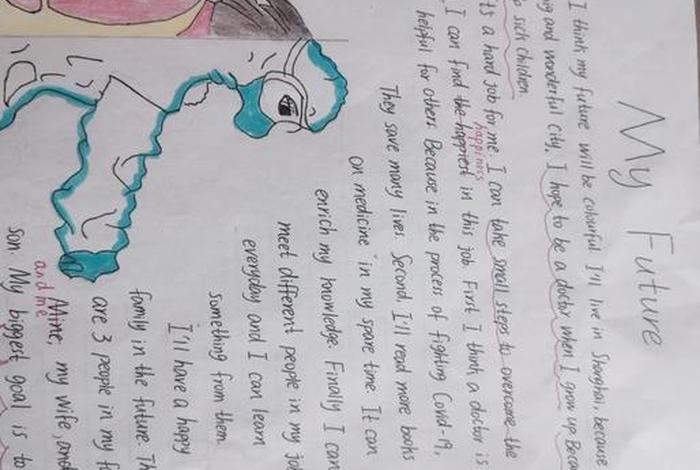 My Future
I think my future will be colourful. I'll live in Shanghai, because
and wonderful city. I hope to be a doctor when I grow up. Bec
sick children.
a hard job for me. I can take small steps to overcome the
happiness
I can find the happiest in this job. First I think a doctor is
helpful for others. Because in the process of fighting Covid-19,
They save many lives. Second, I'll read more books
on medicine in my spare time. It can
enrich my knowledge. Finally I can
meet different people in my jo
everyday and I can learn
something from them.
I'll have a happy
family in the future. Th
are 3 people in my f
and me
Mine, my wife, and
son. My biggest goal is to